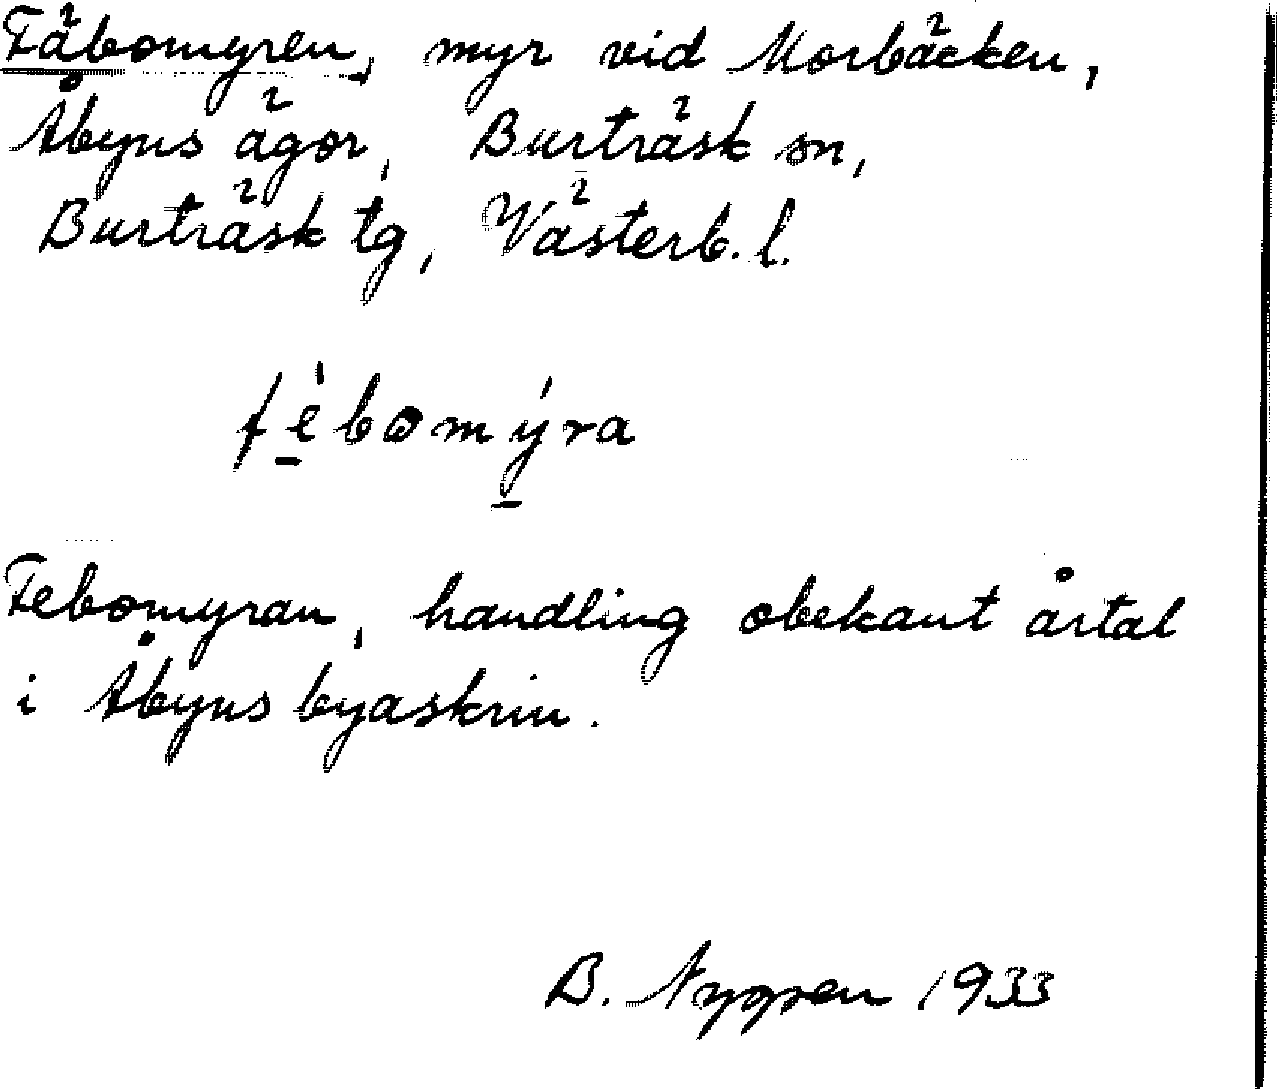 Fäbomyren, myr vid Morbäcken,
Åbyns ägor, Burträsk sn,
Burträsk tg, Västerb. l.
fè̱bomý̱ra
Febomyran, handling obekant årtal
i Åbyns byaskrin.
B. Nygren 1933